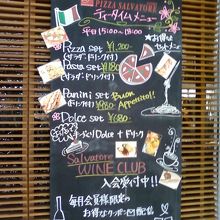 PIZZA SALVATORE
ティータイムメニュー
平日 15:00〜18:00
Pizza set ¥1,200-
(サラダ・ドリンク付)
Pasta set ¥980
(サラダ・ドリンク付)
Panini set Buon
¥980 Appetito!!
Dolce set ¥680-
ドルチェ + ドリンク
Salvatore
WINE CLUB
入会受付中!!
毎月会員様限定の
お得なクーポン